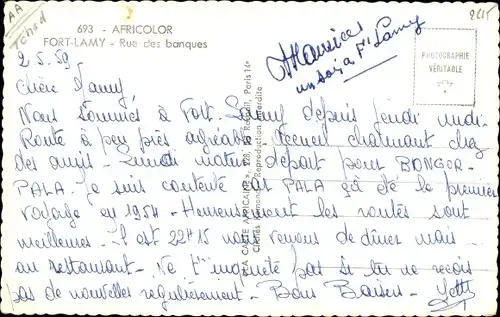 AA
Tchad
693 - AFRICOLOR
FORT-LAMY - Rue des banques
2.5.59
Maurice
un soir a Ft Lamy
PHOTOGRAPHIE
VÉRITABLE
Chère Mamy,
Nous sommes à Fort-Lamy depuis jeudi midi-
Route à peu près agréable - accueil charmant chez
des amis - Lundi matin départ pour BONGOR-
PALA. Je suis contente car PALA ça été le premier
voyage en 1954 - Heureusement les routes sont
meilleures - Il est 22H15 nous venons de dîner mais
au restaurant - Ne t'inquiète pas si tu ne reçois
pas de nouvelles régulièrement - Bons Baisers -
LA CARTE AFRICAINE
Reproduction Interdite